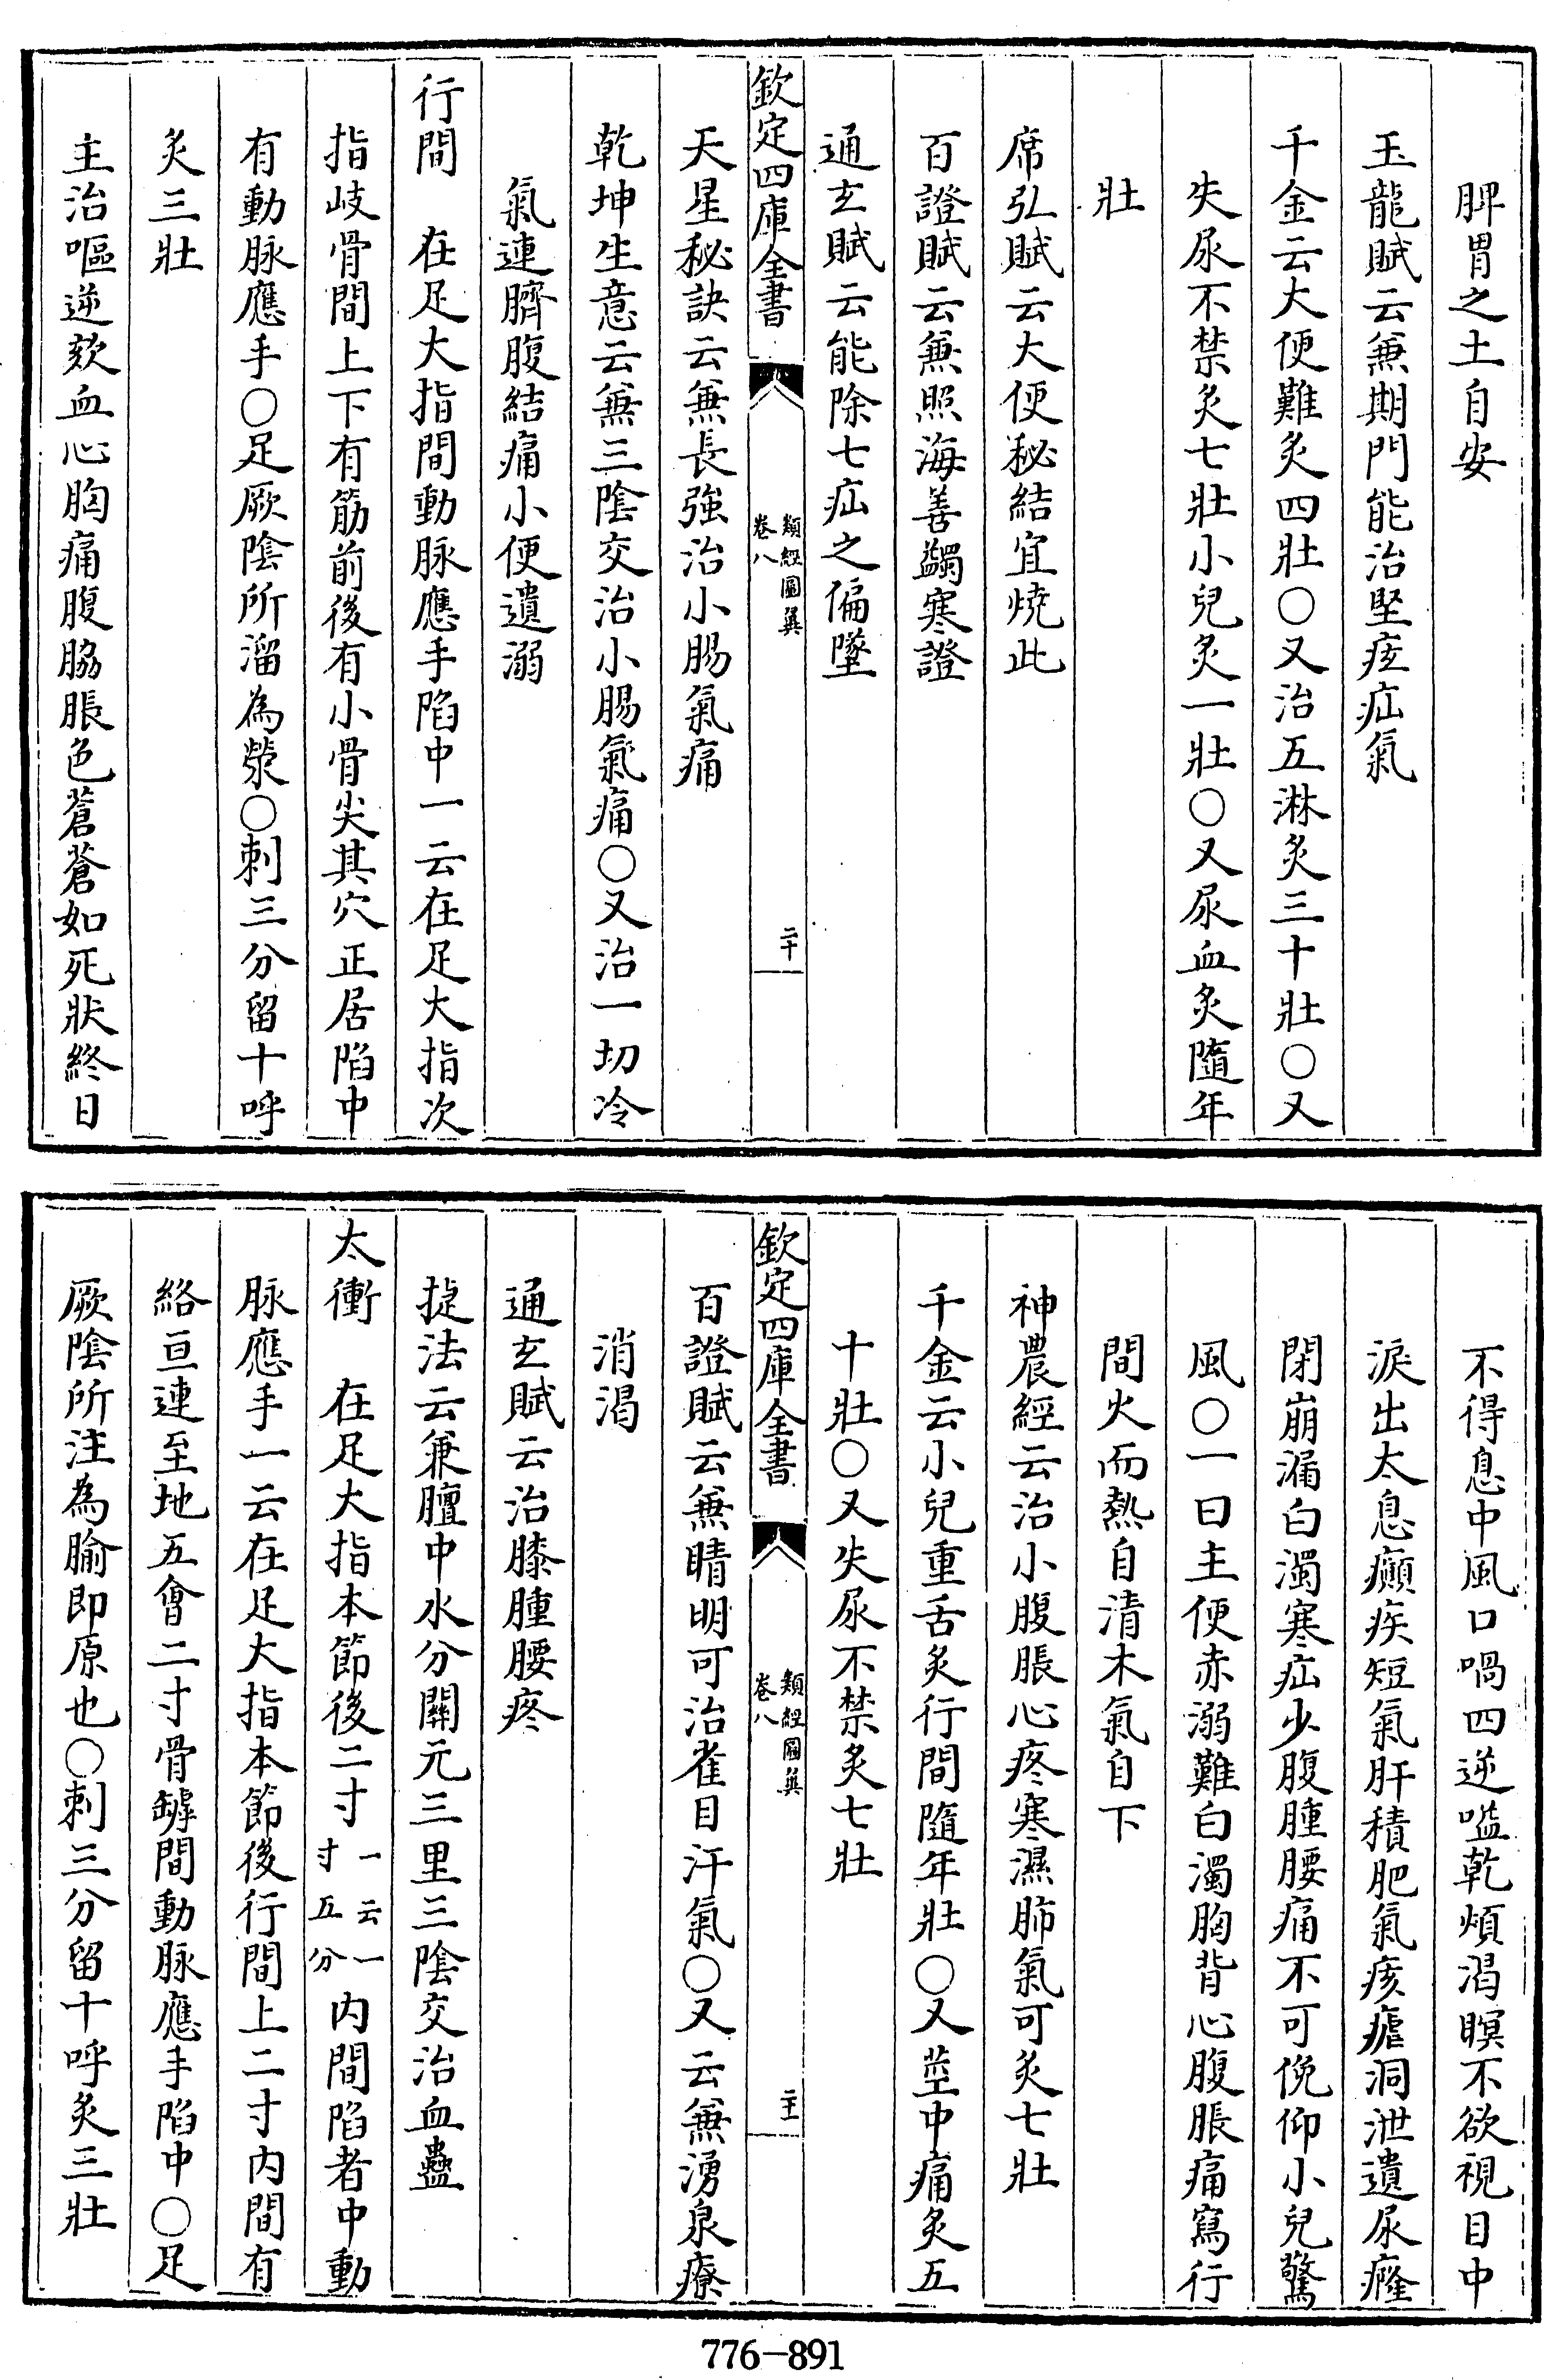 脾胃之土自安
玉龍賦云兼期門能治堅痃疝氣
千金云大便難灸四壯○又治五淋灸三十壯○又
失尿不禁灸七壯小兒灸一壯○又尿血灸隨年
壯
席弘賦云大便秘結宜燒此
百證賦云兼照海善蠲寒證
通玄賦云能除七疝之偏墜
欽定四庫全書
類經圖翼
卷八
二十
天星秘訣云兼長強治小腸氣痛
乾坤生意云兼三陰交治小腸氣痛○又治一切冷
氣連臍腹結痛小便遺溺
行間 在足大指間動脉應手陷中一云在足大指次
指岐骨間上下有筋前後有小骨尖其穴正居陷中
有動脉應手○足厥陰所溜為滎○刺三分留十呼
灸三壯
主治嘔逆欬血心胸痛腹脇脹色蒼蒼如死狀終日
不得息中風口喎四逆嗌乾煩渴瞑不欲視目中
淚出太息癲疾短氣肝積肥氣痎瘧洞泄遺尿癃
閉崩漏白濁寒疝少腹腫腰痛不可俛仰小兒驚
風○一曰主便赤溺難白濁胸背心腹脹痛寫行
間火而熱自清木氣自下
神農經云治小腹脹心疼寒濕腳氣可灸七壯
千金云小兒重舌灸行間隨年壯○又莖中痛灸五
十壯○又失尿不禁灸七壯
欽定四庫全書
類經圖翼
卷八
二十一
百證賦云兼睛明可治雀目汗氣○又云兼湧泉療
消渴
通玄賦云治膝腫腰疼
捷法云兼膻中水分關元三里三陰交治血蠱
太衝 在足大指本節後二寸一云一寸五分內間陷者中動
脉應手一云在足大指本節後行間上二寸內間有
絡亘連至地五會二寸骨罅間動脉應手陷中○足
厥陰所注為腧即原也○刺三分留十呼灸三壯
776-891